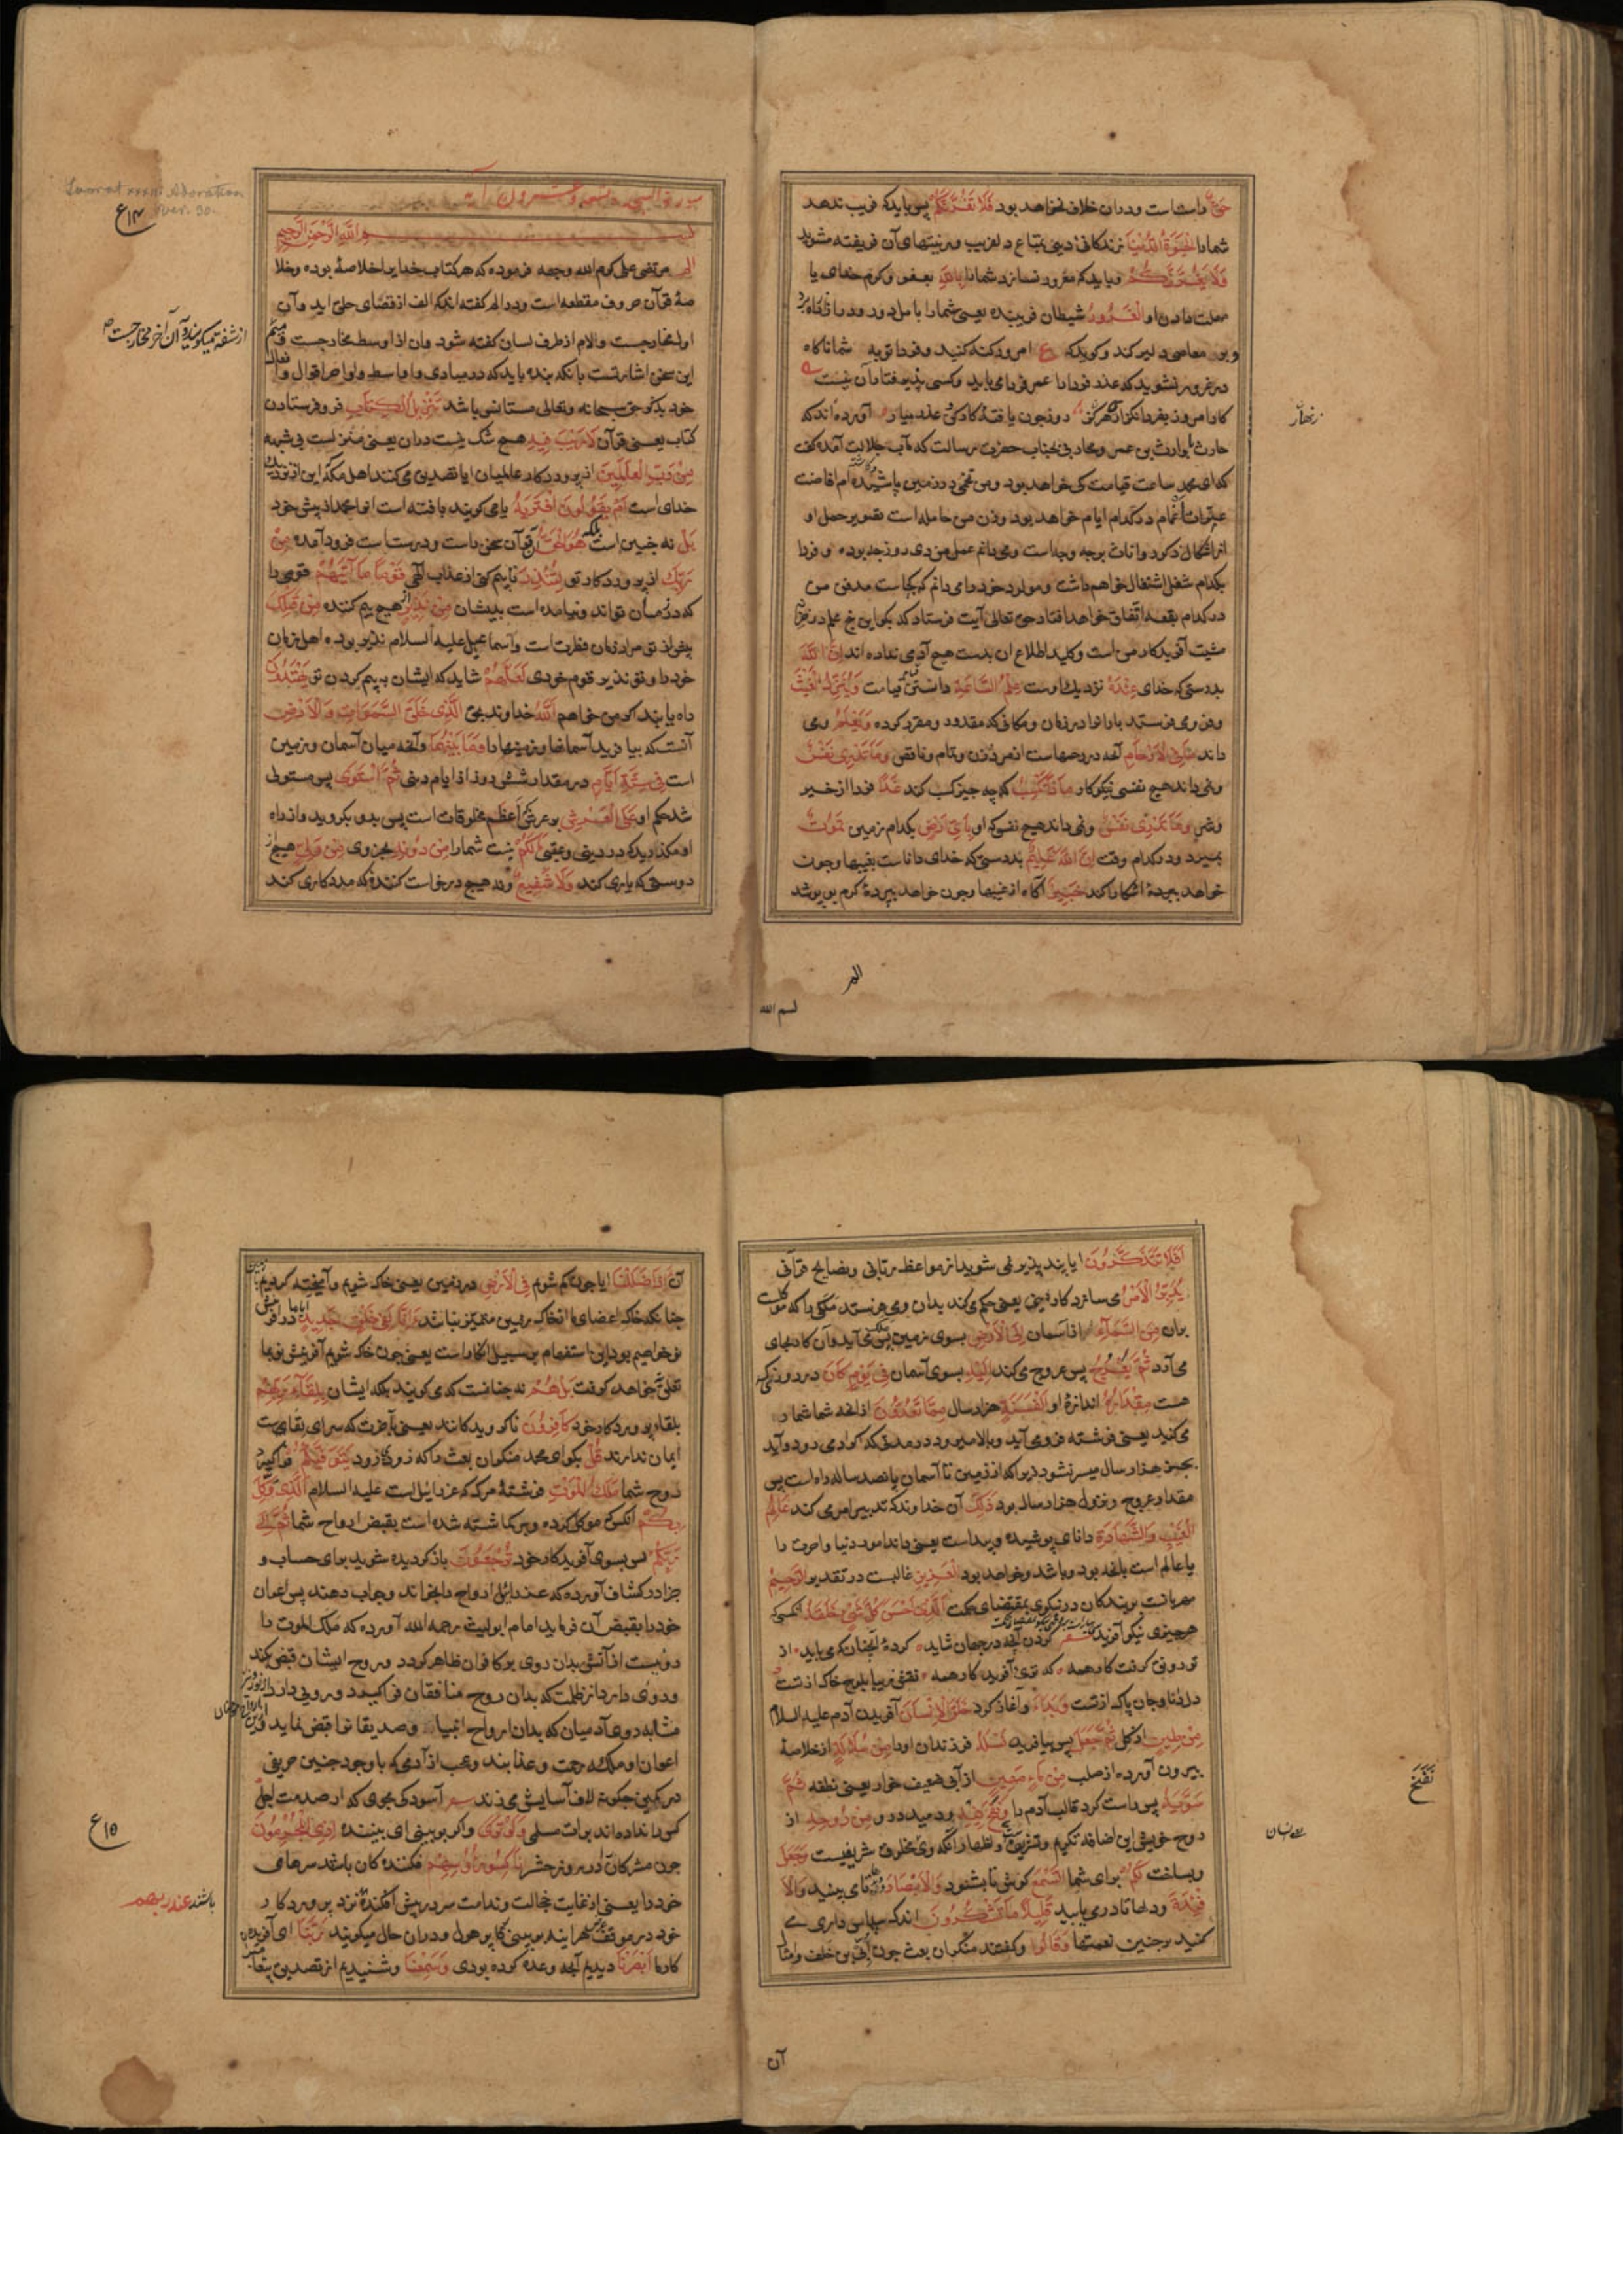 حَقٌّ راست است و در ان خلاف نخواهد بود فَلَا تَغُرَّنَّكُمُ پس باید که فریب ندهد
شما را الْحَيٰوةُ الدُّنْيَا زندکانی دنیی بمتاع دلفریب و زینتهای آن فریفته مشوید
و باید که مغرور نسازد شما را بِاللّٰهِ بعفو و کرم خدای یا
مهلت دادن او الْغَرُورُ شیطان فریبنده یعنی شما را با مل دور و دراز
و بر معاصی دلیر کند و کوید که ع امروز کنه کنید و فردا توبه شما ناکاه
در غرور نشوید که عذر فردا را عمر فردا می باید و کسی پذیرفتار آن نیست
کار امروز بفردا نکذاری هرکز دو نجون یافتهٔ کار کن و عذر میار آورده اند که
حارث یا وارث بن عمرو محاربی بجناب حضرت رسالت مآب آمده کفت
که ای محمد ساعت قیامت کی خواهد بود و من تخمی در زمین پاشیده ام افاضت
در کدام ایام خواهد بود و زن من حامله است تصویر حمل او
بر چه وجه است و می دانم عمل من دی روز چه بوده و فردا
بکدام شغل اشتغال خواهم داشت و مولد خود را می دانم که کجاست مدفن من
در کدام بقعه اتفاق خواهد افتاد حق تعالی آیت فرستاد که بکو این پنج علم در خزانه
مشیت آفریدکار من است و کلید اطلاع ان بدست هیچ آدمی نداده اند اِنَّ اللّٰهَ
بدرستی که خدای عِنْدَهٗ نزدیک اوست عِلْمُ السَّاعَةِ دانستن قیامت وَيُنَزِّلُ الْغَيْثَ
و می فرستد باران را در زمان و مکانی که مقدور و مقرر کرده وَيَعْلَمُ و می
داند مَا فِى الْاَرْحَامِ آنچه در رحمهاست از مرد و زن و تمام و ناقص وَمَا تَدْرِى نَفْسٌ
و نمی داند هیچ نفسی نیکوکار مَاذَا تَكْسِبُ که چه چیز کسب کند غَدًا فردا از خیر
و شر وَمَا تَدْرِى نَفْسٌ و نمی داند هیچ نفسی که او بِاَىِّ اَرْضٍ بکدام زمین تَمُوْتُ
بمیرد و در کدام وقت اِنَّ اللّٰهَ عَلِيْمٌ بدرستی که خدای داناست بغیبها و چون
خواهد پردهٔ اشکارا کند خَبِيْرٌ آکاه از غیبها و چون خواهد پردهٔ کرم بر پوشد
زنهار
الم
بسم الله
Saurat xxxii Adoration
ver. 30.
ع ۱۴
بسم اللّٰهِ الرَّحْمٰنِ الرَّحِيمِ
الم مرتضی علی کرم الله وجهه فرموده که هر کتاب خدایرا خلاصهٔ بوده و خلا
صهٔ قرآن حروف مقطعه است و در الم کفته اند که الف از اقصای حلق اید و آن
اول مخارجست و لام از طرف لسان کفته شود و آن اوسط مخارجست و میم
از شفه میکویند و آن آخر مخارجست
این سخن اشارتست بانکه بنده باید که در مبادی و اواسط و اواخر اقوال و افعال
خود بذکر حق سبحانه و تعالی مستانس باشد تَنْزِيْلُ الْكِتَابِ فرو فرستادن
کتاب یعنی قرآن لَا رَيْبَ فِيْهِ هیچ شک نیست در ان یعنی منزلست بی شبهه
مِنْ رَبِّ الْعٰلَمِيْنَ از پروردکار عالمیان ایا تصدیق می کنند اهل مکه این از نزدیک
خدای است اَمْ يَقُوْلُوْنَ افْتَرٰىهُ یا می کویند بافته است انرا محمد از پیش خود
بَلْ نه چنین است بلکه هُوَ الْحَقُّ قرآن سخن راست و درست است فرود آمده مِنْ
رَبِّكَ از پروردکار تو لِتُنْذِرَ تا بیم کنی از عذاب الٰهی قَوْمًا مَا اَتٰىهُمْ قومی را
که در زمان تواند و نیامده است بدیشان مِنْ نَذِيْرٍ هیچ بیم کننده مِنْ قَبْلِكَ
پیش از تو مراد زمان فطرت است و اسماعیل علیه السلام نذیر بوده اهل زمان
خود را و تو نذیر قوم خودی لَعَلَّهُمْ شاید که ایشان به بیم کردن تو يَهْتَدُوْنَ
راه یابند اَللّٰهُ خداوند بحق الَّذِى خَلَقَ السَّمٰوَاتِ وَالْاَرْضَ
آنست که بیافرید آسمانها و زمینها را وَمَا بَيْنَهُمَا و آنچه میان آسمان و زمین
است فِى سِتَّةِ اَيَّامٍ در مقدار شش روز از ایام دنیی ثُمَّ اسْتَوٰى پس مستولی
شد حکم او عَلَى الْعَرْشِ بر عرش که اعظم مخلوقات است پس بدو بکروید و از راه
او مکذرید که در دنیی و عقبی مَا لَكُمْ نیست شما را مِنْ دُوْنِهٖ بجز وی مِنْ وَلِىٍّ هیچ
دوستی که یاری کند وَلَا شَفِيْعٍ و نه هیچ درخواست کننده که مددکاری کند
اَفَلَا تَتَذَكَّرُوْنَ ایا پند پذیر نمی شوید از مواعظ ربانی و نصایح قرآنی
يُدَبِّرُ الْاَمْرَ می سازد کار دنیی یعنی حکم می کند بدان و می فرستد ملکی را که موکلست
بران مِنَ السَّمَآءِ از آسمان اِلَى الْاَرْضِ بسوی زمین پس ملک می آید و آن کار بجای
می آرد ثُمَّ يَعْرُجُ پس عروج می کند اِلَيْهِ بسوی آسمان فِى يَوْمٍ كَانَ در روزی که
هست مِقْدَارُهٗ اندازهٔ او اَلْفَ سَنَةٍ هزار سال مِمَّا تَعُدُّوْنَ از انچه شما شمار
می کنید یعنی فرشته فرو می آید و بالا میرود در مدتی که اکر آدمی رود و آید
بجز هزار سال میسر نشود زیرا که از زمین تا آسمان پانصد ساله راه است پس
مقدار عروج و نزول هزار سال بود ذٰلِكَ آن خداوند که تدبیر امر می کند عَالِمُ
الْغَيْبِ وَالشَّهَادَةِ دانای پوشیده و پیداست یعنی داند امور دنیا و اخرت را
یا عالم است بانچه بود و باشد و خواهد بود الْعَزِيْزُ غالبست در تقدیر الرَّحِيْمُ
مهربانست بر بندکان در نیکوی بمقتضای حکمت الَّذِى اَحْسَنَ كُلَّ شَىْءٍ خَلَقَهٗ انکسی که
هر چیزی نیکو آفرید کردن آنچه در جهان شاید کردهٔ آنچنان که می باید از
تو رونق کرفت کار همه که توی آفریدکار همه نقشی زیبا بلوح خاک از تست
دل دانا و جان پاک از تست وَبَدَاَ و آغاز کرد خَلْقَ الْاِنْسَانِ آفریدن آدم علیه السلام
مِنْ طِيْنٍ از کل ثُمَّ جَعَلَ پس بیافرید نَسْلَهٗ فرزندان او را مِنْ سُلَالَةٍ از خلاصهٔ
بیرون آورده از صلب مِنْ مَاءٍ مَهِيْنٍ از آبی ضعیف خوار یعنی نطفه ثُمَّ
سَوّٰىهُ پس راست کرد قالب آدم را وَنَفَخَ فِيْهِ و دمید در و مِنْ رُوْحِهٖ از
روح خویش این اضافه تکریم و تشریفست و اظهار آنکه وی مخلوق شریفست وَجَعَلَ
و بساخت لَكُمُ برای شما السَّمْعَ کوش تا بشنود وَالْاَبْصَارَ و دیدها تا می بینید وَالْاَ
فْئِدَةَ و دلها تا دریابید قَلِيْلًا مَا تَشْكُرُوْنَ اندک سپاس داری می
کنید بر چنین نعمتها وَقَالُوا و کفتند منکران بعث چون اُبَیّ بن خلف و امثال
نَفَخَ
آن
آن ءَاِذَا ضَلَلْنَا ایا چون کم شویم فِى الْاَرْضِ در زمین یعنی خاک شویم و آمیخته کردیم
چنانکه خاک اعضای ما از خاک زمین متمیز نباشد ءَاِنَّا لَفِى خَلْقٍ جَدِيْدٍ ایا ما در آفرینش
نو خواهیم بود این استفهام بر سبیل انکار است یعنی چون خاک شویم آفرینش نو بما
تعلق نخواهد کرفت بَلْ هُمْ نه چنانست که می کویند بلکه ایشان بِلِقَآءِ رَبِّهِمْ
بلقاء پروردکار خود كَافِرُوْنَ ناکرویدکانند یعنی بآخرت که سرای بقای است
ایمان ندارند قُلْ بکو ای محمد منکران بعث را که زود زود يَتَوَفّٰىكُمْ فراکیرد
روح شما مَلَكُ الْمَوْتِ فرشتهٔ مرک که عزرائیل است علیه السلام الَّذِى وُكِّلَ
بِكُمْ آنکس که موکل کرده و برکماشته شده است بقبض ارواح شما ثُمَّ اِلٰى
رَبِّكُمْ پس بسوی آفریدکار خود تُرْجَعُوْنَ بازکردیده شوید برای حساب و
جزا در کشاف آورده که عزرائیل ارواح را بخواند و جواب دهند پس اعوان
خود را بقبض آن فرماید امام ابولیث رحمه الله آورده که ملک الموت را
رویست از آتش بدان روی بر کافران ظاهر کردد و روح ایشان قبض کند
و روی دارد از ظلمت که بدان روح منافقان فراکیرد و رویی دارد
مشابه روی آدمیان که بدان ارواح انبیا و صدیقان را قبض نماید و
اعوان او ملائکه رحمت و عذابند و عجب از آدمی که با وجود چنین حریفی
در کمین چکونه لاف آسایش می زند آسودکی مجوی که از صدمت اجل
کس را نداده اند برات مسلمی وَلَوْ تَرٰى و اکر ببینی ای بیننده اِذِ الْمُجْرِمُوْنَ
چون مشرکان در روز حشر نَاكِسُوا رُءُوْسِهِمْ فکنندکان باشند سرهای
خود را یعنی از غایت خجالت و ندامت سر در پیش افکنده نزد پروردکار
باشند عِنْدَ رَبِّهِمْ
خود در موقف هر اینه بر بینی کار پر هول و در ان حال میکویند رَبَّنَا ای آفریدکار
کار ما اَبْصَرْنَا دیدیم آنچه وعده کرده بودی وَسَمِعْنَا و شنیدیم از تصدیق
ع ۱۵